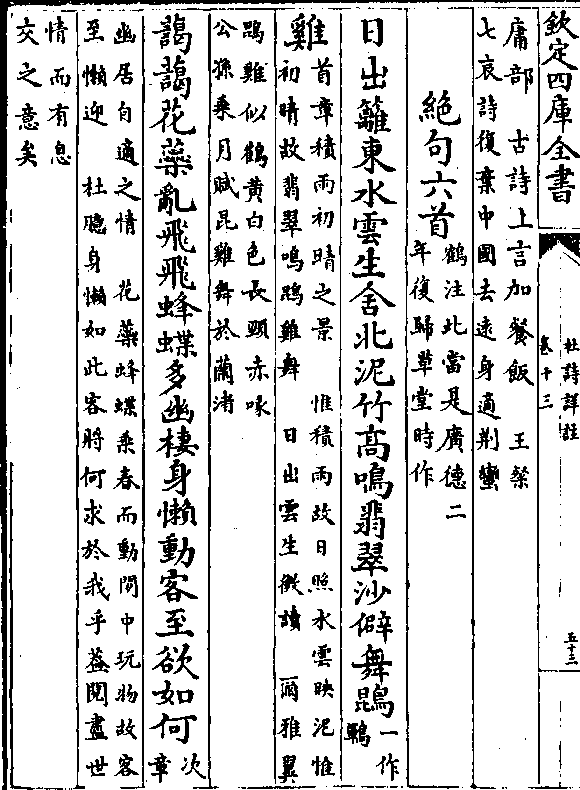 欽定四庫全書
杜詩詳註
卷十三
五十三
庸部 古詩上言加餐飯 王粲
七哀詩復棄中國去遠身適荆蠻
絶句六首
鶴注此當是廣德二
年復歸草堂時作
日出籬東水雲生舍北泥竹高鳴翡翠沙僻舞鵾
一作
鶤
雞
首章積雨初晴之景 惟積雨故日照水雲映泥惟
初晴故翡翠鳴鵾雞舞 日出雲生微讀 爾雅翼
鵾雞似鶴黄白色長頸赤喙
公孫乗月賦昆雞舞於蘭渚
藹藹花蘂亂飛飛蜂蝶多幽棲身懶動客至欲如何
次
章
幽居自適之情 花蘂蜂蝶乘春而動閒中玩物故客
至懶迎 杜臆身懶如此客將何求於我乎葢閲盡世
情而有息
交之意矣